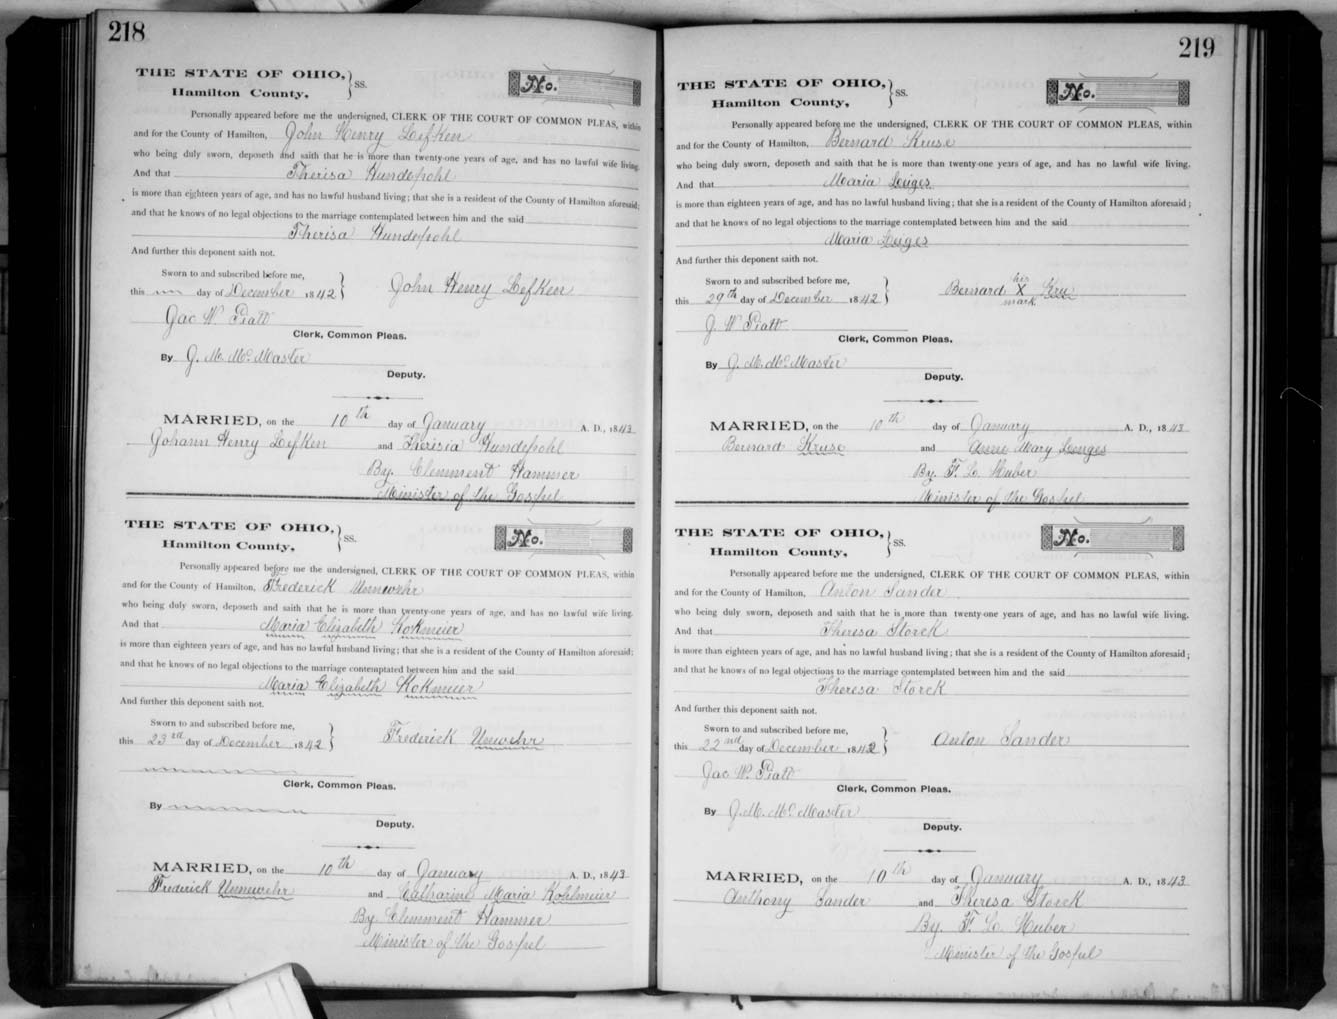 218
THE STATE OF OHIO, } SS.
Hamilton County,
No.
Personally appeared before me the undersigned, CLERK OF THE COURT OF COMMON PLEAS, within
and for the County of Hamilton, John Henry Lefken
who being duly sworn, deposeth and saith that he is more than twenty-one years of age, and has no lawful wife living.
And that Therisa Hundepohl
is more than eighteen years of age, and has no lawful husband living; that she is a resident of the County of Hamilton aforesaid;
and that he knows of no legal objections to the marriage contemplated between him and the said
Therisa Hundepohl
And further this deponent saith not.
Sworn to and subscribed before me,
this day of December 1842 } John Henry Lefken
Jac W. Piatt
Clerk, Common Pleas.
By J. M. McMaster
Deputy.
MARRIED, on the 10th day of January A. D., 1843
Johann Henry Lefken and Therisia Hundepohl
By. Clemment Hammer
Minister of the Gospel
THE STATE OF OHIO, } SS.
Hamilton County,
No.
Personally appeared before me the undersigned, CLERK OF THE COURT OF COMMON PLEAS, within
and for the County of Hamilton, Frederick Unnewehr
who being duly sworn, deposeth and saith that he is more than twenty-one years of age, and has no lawful wife living.
And that Maria Elizabeth Kokmeier
is more than eighteen years of age, and has no lawful husband living; that she is a resident of the County of Hamilton aforesaid;
and that he knows of no legal objections to the marriage contemptated between him and the said
Maria Elizabeth Kokmeier
And further this deponent saith not.
Sworn to and subscribed before me,
this 23rd day of December 1842 } Frederick Unwehr
Clerk, Common Pleas.
By
Deputy.
MARRIED, on the 10th day of January A. D., 1843
Frederick Unnewehr and Catharine Maria Kohlmeier
By Clemment Hammer
Minister of the Gospel
219
THE STATE OF OHIO, } SS.
Hamilton County,
No.
Personally appeared before me the undersigned, CLERK OF THE COURT OF COMMON PLEAS, within
and for the County of Hamilton, Bernard Kruse
who being duly sworn, deposeth and saith that he is more than twenty-one years of age, and has no lawful wife living.
And that Maria Luges
is more than eighteen years of age, and has no lawful husband living; that she is a resident of the County of Hamilton aforesaid;
and that he knows of no legal objections to the marriage contemplated between him and the said
Maria Luges
And further this deponent saith not.
Sworn to and subscribed before me,
this 29th day of December 1842 } Bernard his X mark Kru
J. W Piatt
Clerk, Common Pleas.
By J. M. McMaster
Deputy.
MARRIED, on the 10th day of January A. D., 1843
Bernard Kruse and Anne Mary Lenges
By. F. L. Huber
Minister of the Gospel
THE STATE OF OHIO, } SS.
Hamilton County,
No.
Personally appeared before me the undersigned, CLERK OF THE COURT OF COMMON PLEAS, within
and for the County of Hamilton, Anton Sander
who being duly sworn, deposeth and saith that he is more than twenty-one years of age, and has no lawful wife living.
And that Theresa Storck
is more than eighteen years of age, and has no lawful husband living; that she is a resident of the County of Hamilton aforesaid;
and that he knows of no legal objections to the marriage contemplated between him and the said
Theresa Storck
And further this deponent saith not.
Sworn to and subscribed before me,
this 22nd day of December 1842 } Anton Sander
Jac W. Piatt
Clerk, Common Pleas.
By J. M. McMaster
Deputy.
MARRIED, on the 10th day of January A. D., 1843
Anthony Sander and Theresa Storck
By. F. L. Huber
Minister of the Gospel